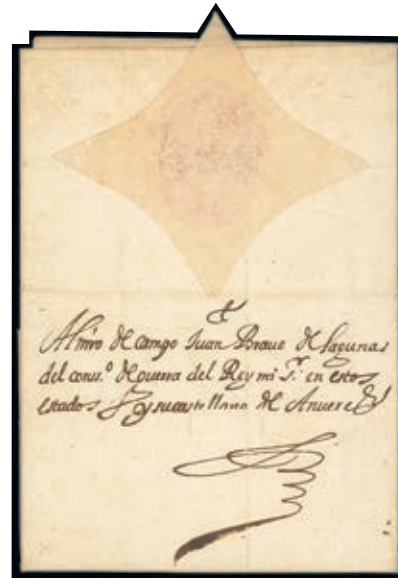 Al mro de campo Juan Bravo de Lagunas
del cons.º de guerra del Rey mi S.r en estos
estados y su castellano de Anveres